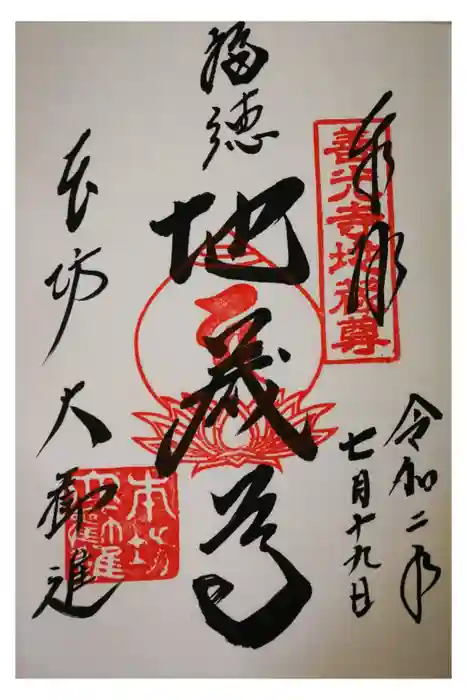 奉拝
善光寺地蔵尊
令和二年
七月十九日
福徳
地蔵尊
本坊 大勧進
本坊
大勧進